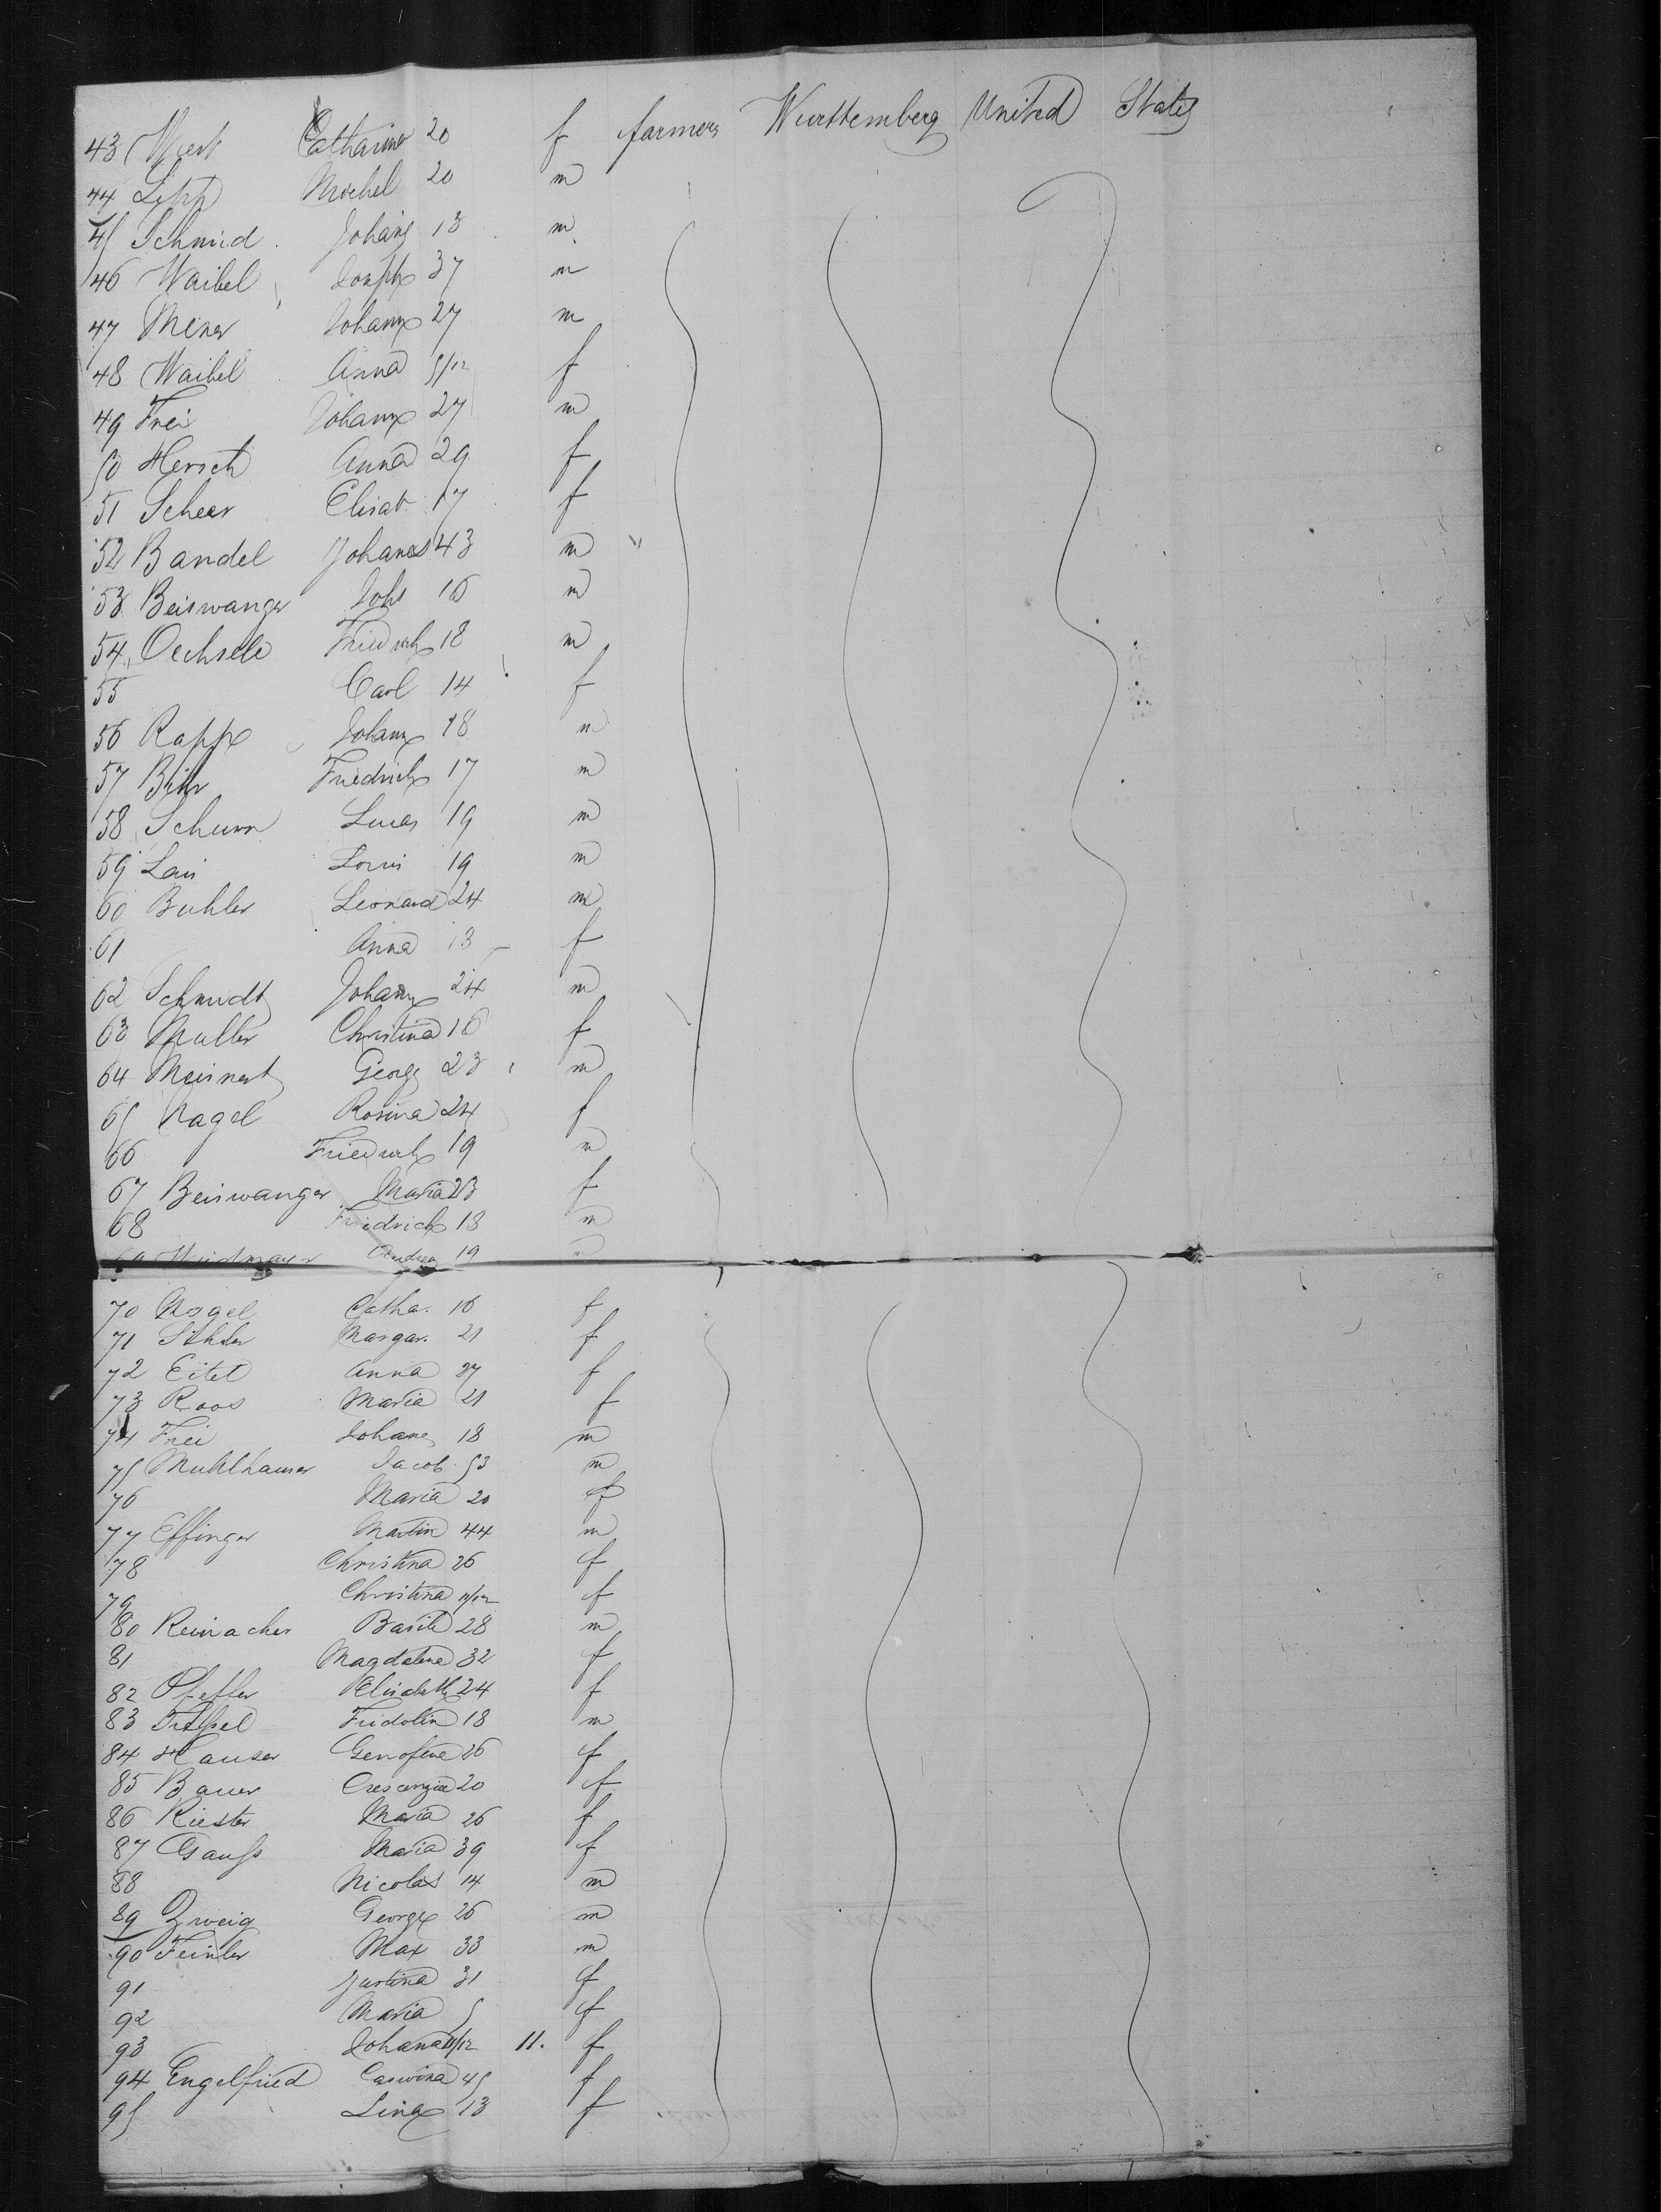 43 Wiest Catharine 20 f farmers Wurttemberg United States
44 Lipp Michel 20 m
45 Schmid Johans 13 m
46 Waibel Joseph 37 m
47 Johann 27 m
48 Waibel Anna 5/12 f
49 Frei Johann 27 m
50 Hersch Anna 29 f
51 Scheer Elisab. 17 f
52 Bandel Johanes 43 m "
53 Beiswanger Johs 16 m
54 Oechsele Friedrich 18 m
55 Carl 14 f
56 Rapp Johann 18 m
57 Friedrich 17 m
58 Schurr Lucas 19 m
59 Louis 19 m
60 Buhler Leonard 24 m
61 Anna 13 f
62 Schmidt Johann 24 m
63 Muller Christina 16 f
64 Meinert Georg 23 m
65 Nagel Rosina 24 f
66 Friedrich 19 m
67 Beiswanger Maria 23 f
68 Friedrich 13 m
69 Widmayer Andreas 19 m
70 Nagel Catha. 16 f
71 Margar. 21 f
72 Eitel Anna 27 f
73 Roos Maria 21 f
74 Frei Johans 18 m
75 Muhlhauser Jacob 53 m
76 Maria 20 f
77 Effinger Martin 44 m
78 Christina 26 f
79 Christina 11/12 f
80 Reinacher Basile 28 m
81 Magdalene 32 f
82 Pfeffer Elisabeth 24 f
83 Fridolin 18 m
84 Hauser Genofeve 26 f
85 Bauer Crescenzia 20 f
86 Riester Maria 26 f
87 Gauss Maria 39 f
88 Nicolas 14 m
89 Zweig George 26 m
90 Feinler Max 33 m
91 Justina 31 f
92 Maria 5 f
93 Johana 11/12 11. f
94 Engelfried 45 f
95 Lina 13 f